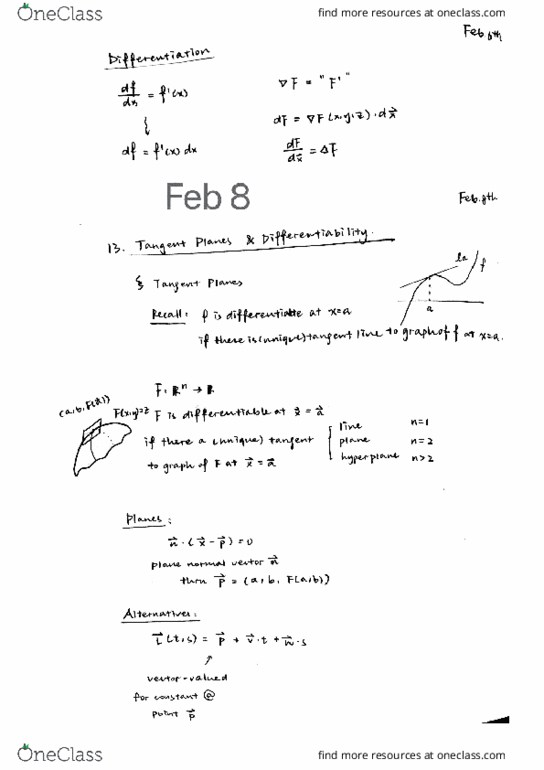 OneClass
find more resources at oneclass.com
Feb 6th
Differentiation
df/dx = f'(x)
∇F = "F'"
dF = ∇F(x,y,z) · dx⃗
df = f'(x) dx
dF/dx⃗ = ΔF
Feb 8
Feb. 8th
13. Tangent Planes & Differentiability.
§ Tangent Planes
la
f
a
Recall: f is differentiable at x=a
if there is (unique) tangent line to graph of f at x=a.
F: ℝⁿ → ℝ
(a,b,F(a))
F(x,y)=z
F is differentiable at x⃗ = a⃗
if there a (unique) tangent
to graph of F at x⃗ = a⃗
line n=1
plane n=2
hyperplane n>2
Planes:
n⃗ · (x⃗ - p⃗) = 0
plane normal vector n⃗
thru p⃗ = (a, b, F(a,b))
Alternatives:
L⃗(t,s) = p⃗ + v⃗·t + w⃗·s
vector-valued
for constant @
point p⃗
OneClass
find more resources at oneclass.com